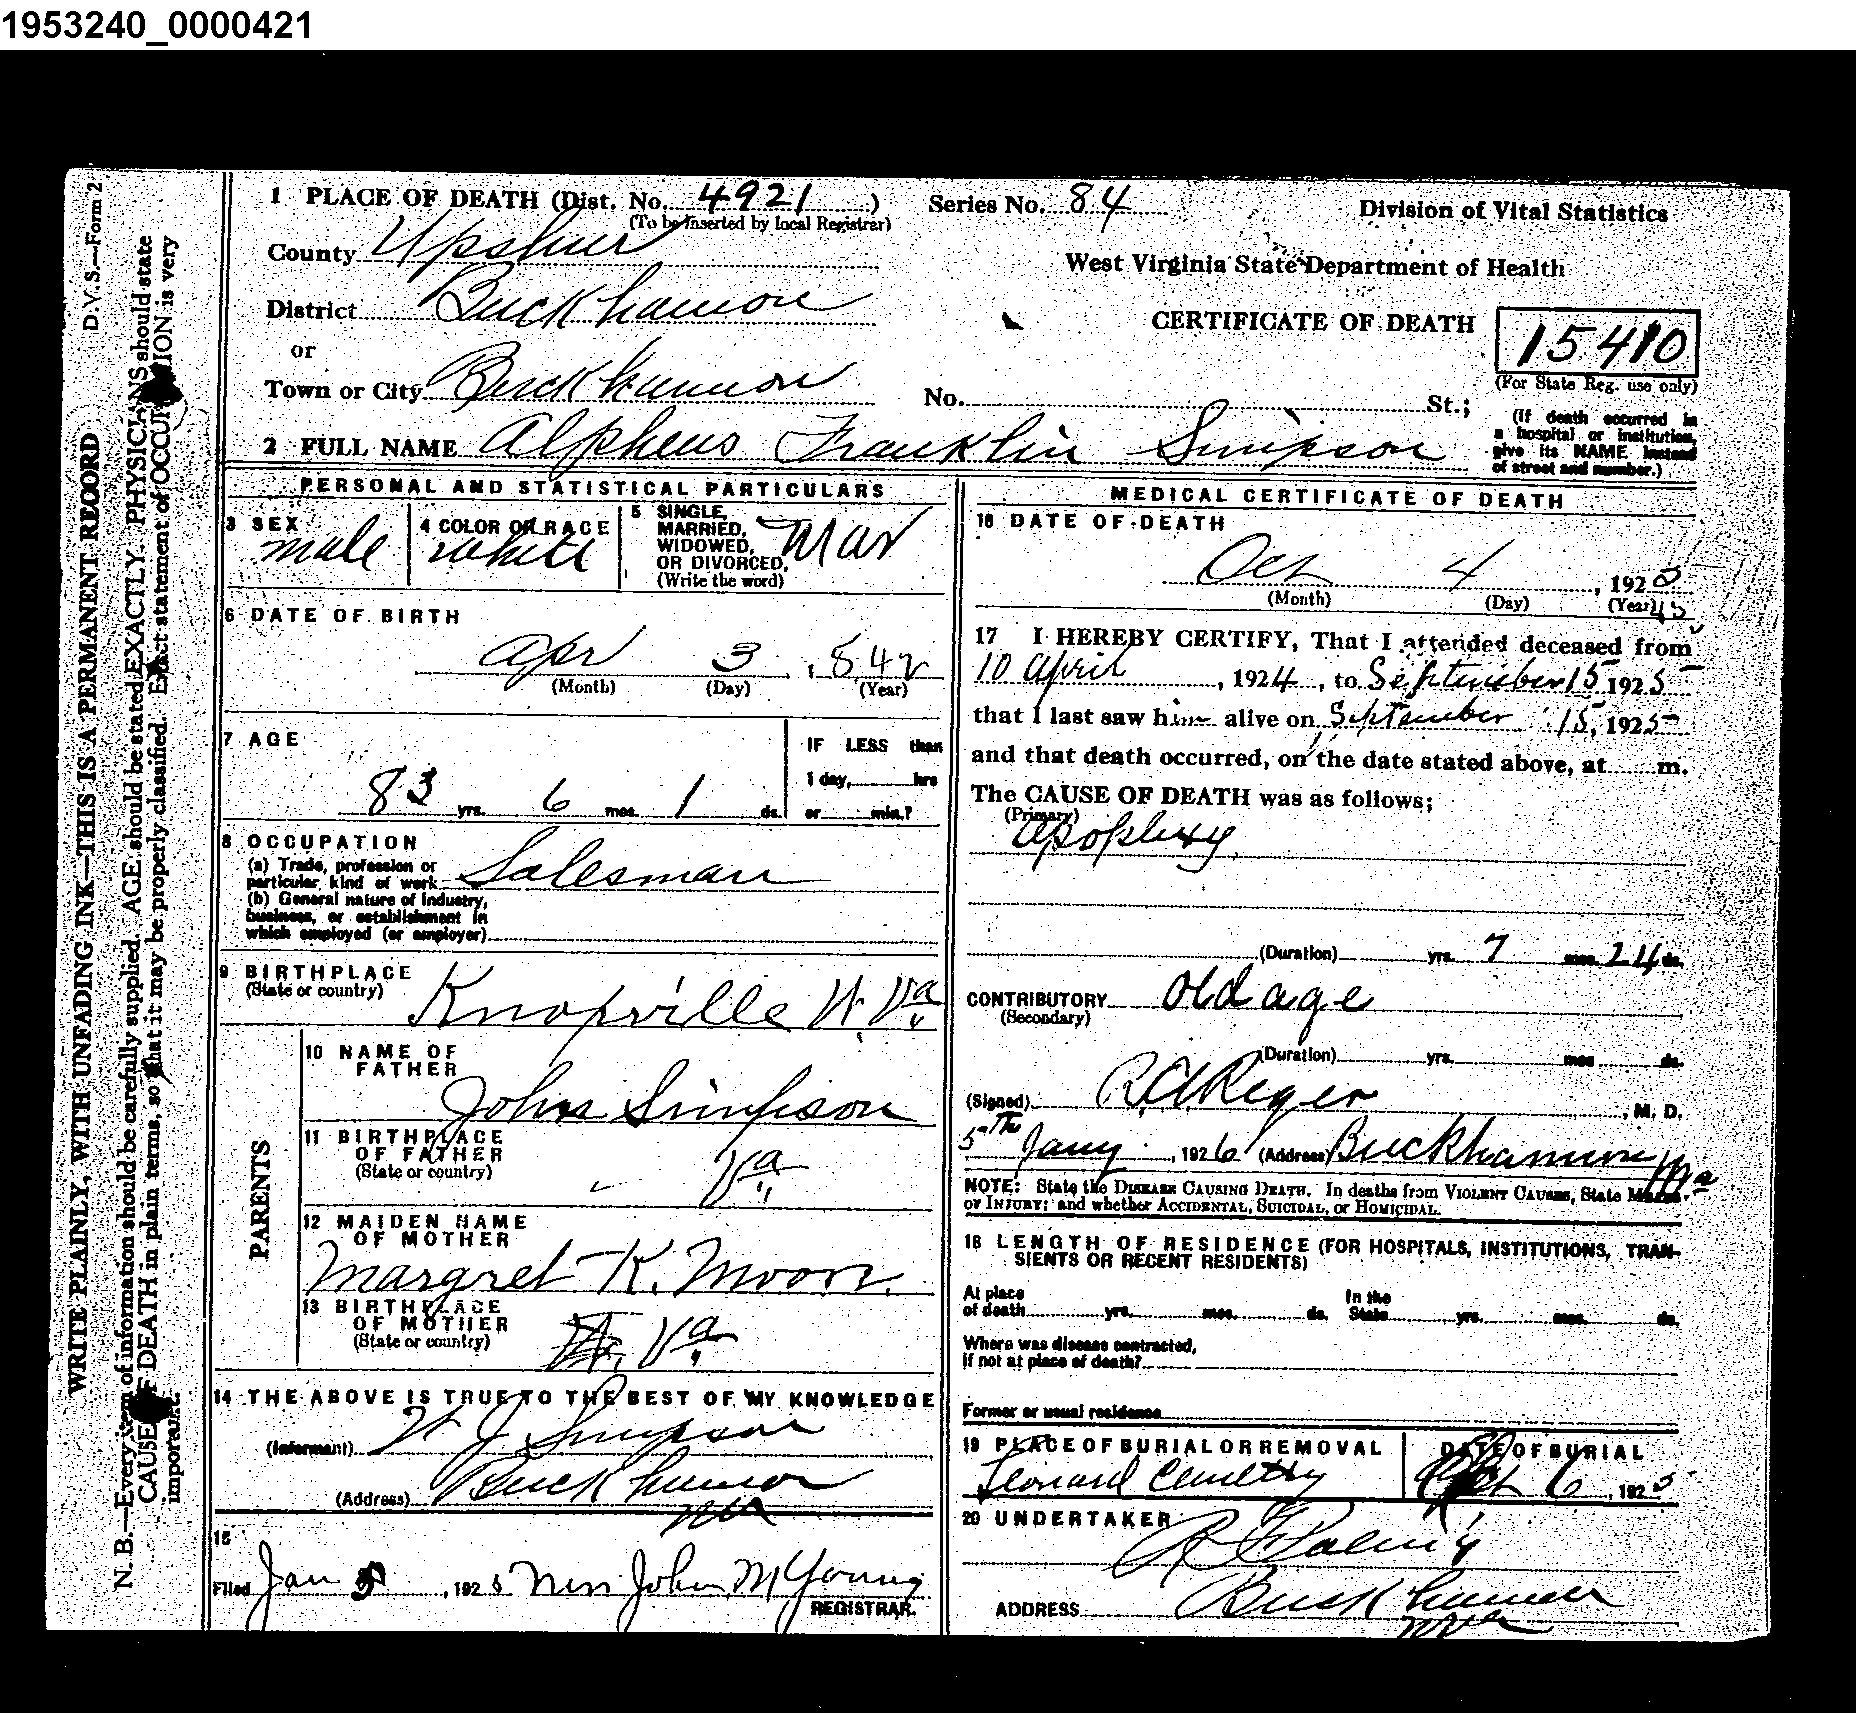 1953240_0000421
D.V.S.—Form 2
WRITE PLAINLY, WITH UNFADING INK—THIS IS A PERMANENT RECORD
N. B.—Every item of information should be carefully supplied. AGE should be stated EXACTLY. PHYSICIANS should state
CAUSE OF DEATH in plain terms, so that it may be properly classified. Exact statement of OCCUPATION is very
important.
1 PLACE OF DEATH (Dist. No. 4921 )
(To be Inserted by local Registrar)
Series No. 84
Division of Vital Statistics
County Upshur
West Virginia State Department of Health
District Buckhannon
CERTIFICATE OF DEATH
15410
(For State Reg. use only)
or
Town or City Buckhannon
No. St.;
(If death occurred in
a hospital or institution,
give its NAME instead
of street and number.)
2 FULL NAME Alpheus Franklin Simpson
PERSONAL AND STATISTICAL PARTICULARS
3 SEX
male
4 COLOR OR RACE
white
5 SINGLE,
MARRIED,
WIDOWED,
OR DIVORCED,
(Write the word)
Mar
6 DATE OF BIRTH
Apr 3 , 1842
(Month) (Day) (Year)
7 AGE
83 yrs. 6 mos. 1 ds.
IF LESS than
1 day, hrs
or min.?
8 OCCUPATION
(a) Trade, profession or
particular kind of work Salesman
(b) General nature of Industry,
business, or establishment in
which employed (or employer)
9 BIRTHPLACE
(State or country)
Knoxville W. Va
PARENTS
10 NAME OF
FATHER
John Simpson
11 BIRTHPLACE
OF FATHER
(State or country)
Va
12 MAIDEN NAME
OF MOTHER
Margret K. Moon
13 BIRTHPLACE
OF MOTHER
(State or country)
Va
14 THE ABOVE IS TRUE TO THE BEST OF MY KNOWLEDGE
(Informant) W J Simpson
(Address) Buckhannon
WVa
15
Filed Jan 5 , 1925 Mrs John M Young
REGISTRAR.
MEDICAL CERTIFICATE OF DEATH
16 DATE OF DEATH
Oct 4 , 1925
(Month) (Day) (Year)
17 I HEREBY CERTIFY, That I attended deceased from
10 April , 1924 , to September 15 1925
that I last saw him alive on September 15, 1925
and that death occurred, on the date stated above, at m.
The CAUSE OF DEATH was as follows;
(Primary)
Apoplexy
(Duration) yrs. 7 mos. 24 ds.
CONTRIBUTORY Old age
(Secondary)
(Duration) yrs. mos ds.
(Signed) R.A. Reger , M. D.
5th Jany , 1926 (Address) Buckhannon WVa
NOTE: State the DISEASE CAUSING DEATH. In deaths from VIOLENT CAUSES, State MEANS
OF INJURY; and whether ACCIDENTAL, SUICIDAL, or HOMICIDAL.
18 LENGTH OF RESIDENCE (FOR HOSPITALS, INSTITUTIONS, TRAN-
SIENTS OR RECENT RESIDENTS)
At place
of death yrs. mos. ds.
In the
State yrs. mos. ds.
Where was disease contracted,
if not at place of death?
Former or usual residence
19 PLACE OF BURIAL OR REMOVAL
Leonard Cemetry
DATE OF BURIAL
Oct 6 , 1925
20 UNDERTAKER
ADDRESS Buckhannon
WVa